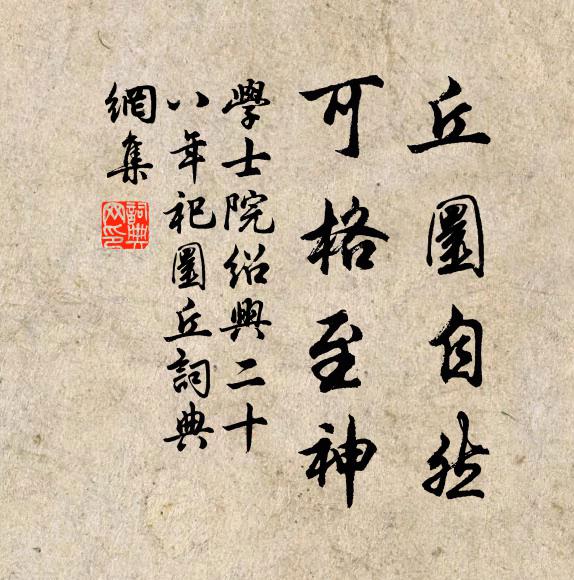 丘圜自然
可格至神
學士院紹興二十
八年祀圜丘詞典
網集
詞典
网印